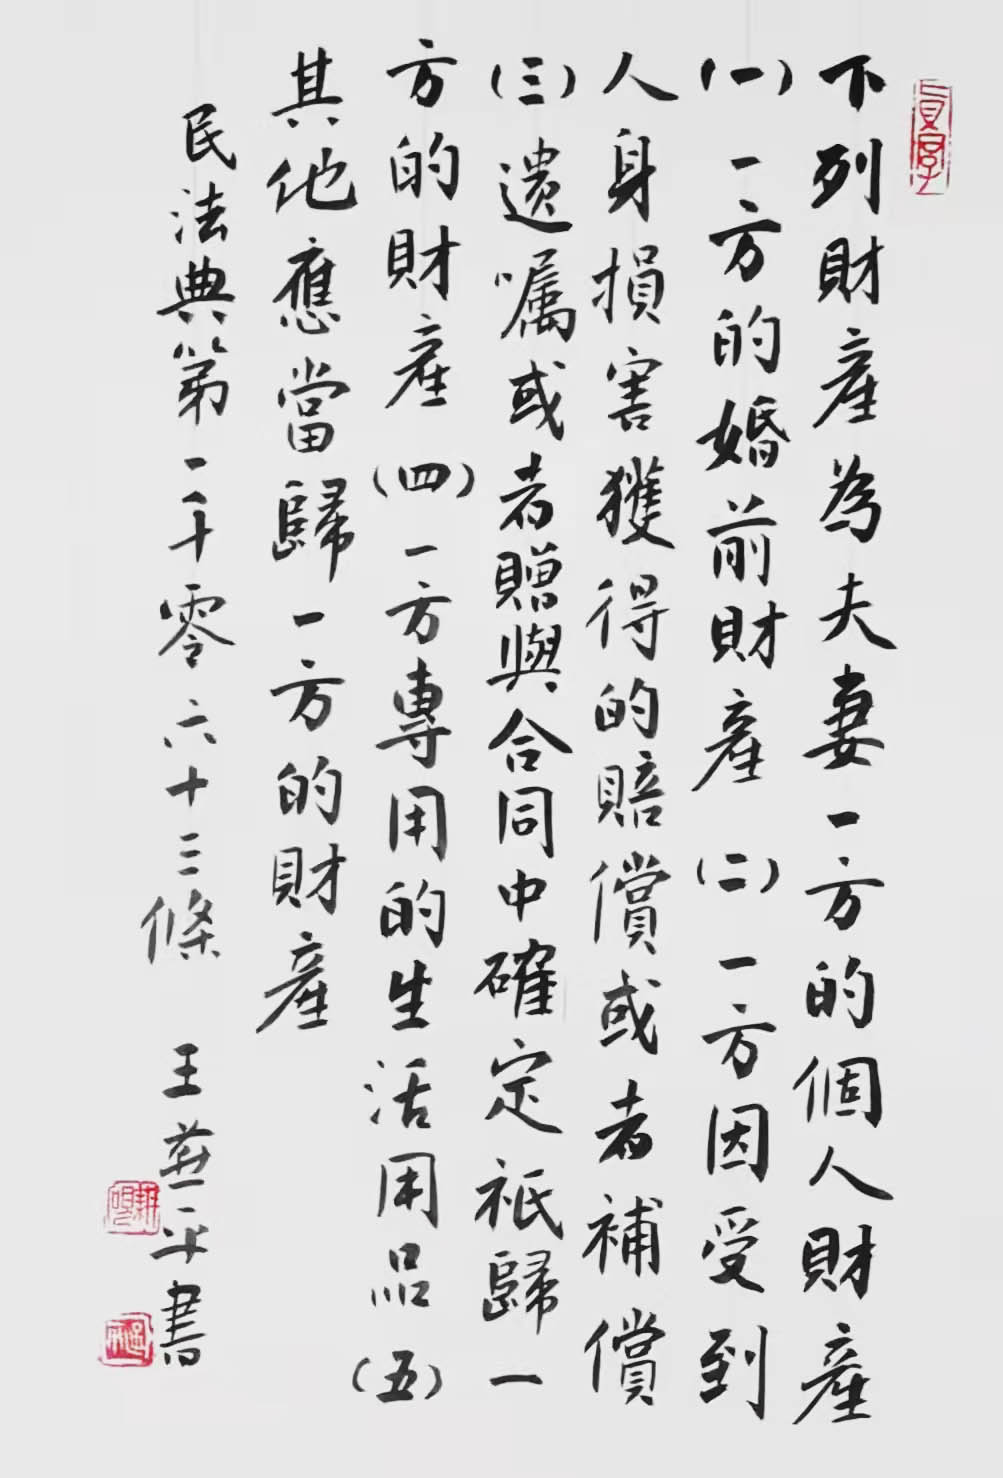 下列財產為夫妻一方的個人財產
(一)一方的婚前財產(二)一方因受到
人身損害獲得的賠償或者補償
(三)遗嘱或者贈與合同中確定祇歸一
方的財產(四)一方專用的生活用品(五)
其他應當歸一方的財產
民法典第一千零六十三條 王燕平書